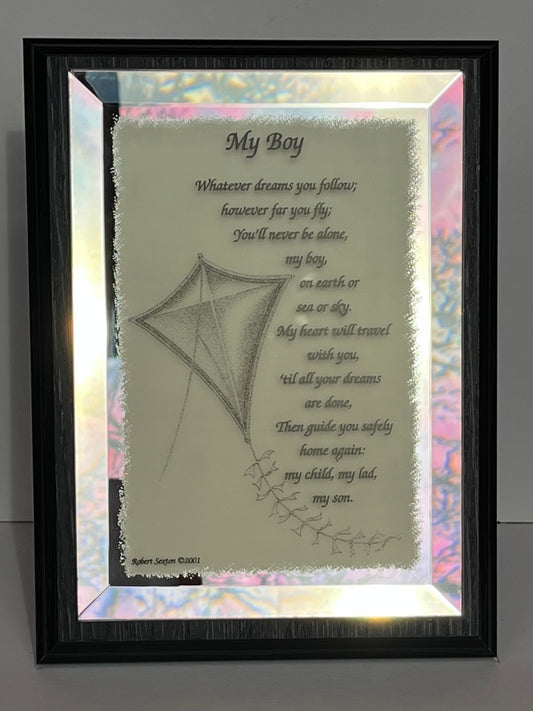 My Boy
Whatever dreams you follow;
however far you fly;
You'll never be alone,
my boy,
on earth or
sea or sky.
My heart will travel
with you,
'til all your dreams
are done,
Then guide you safely
home again:
my child, my lad,
my son.
Robert Sexton ©2001